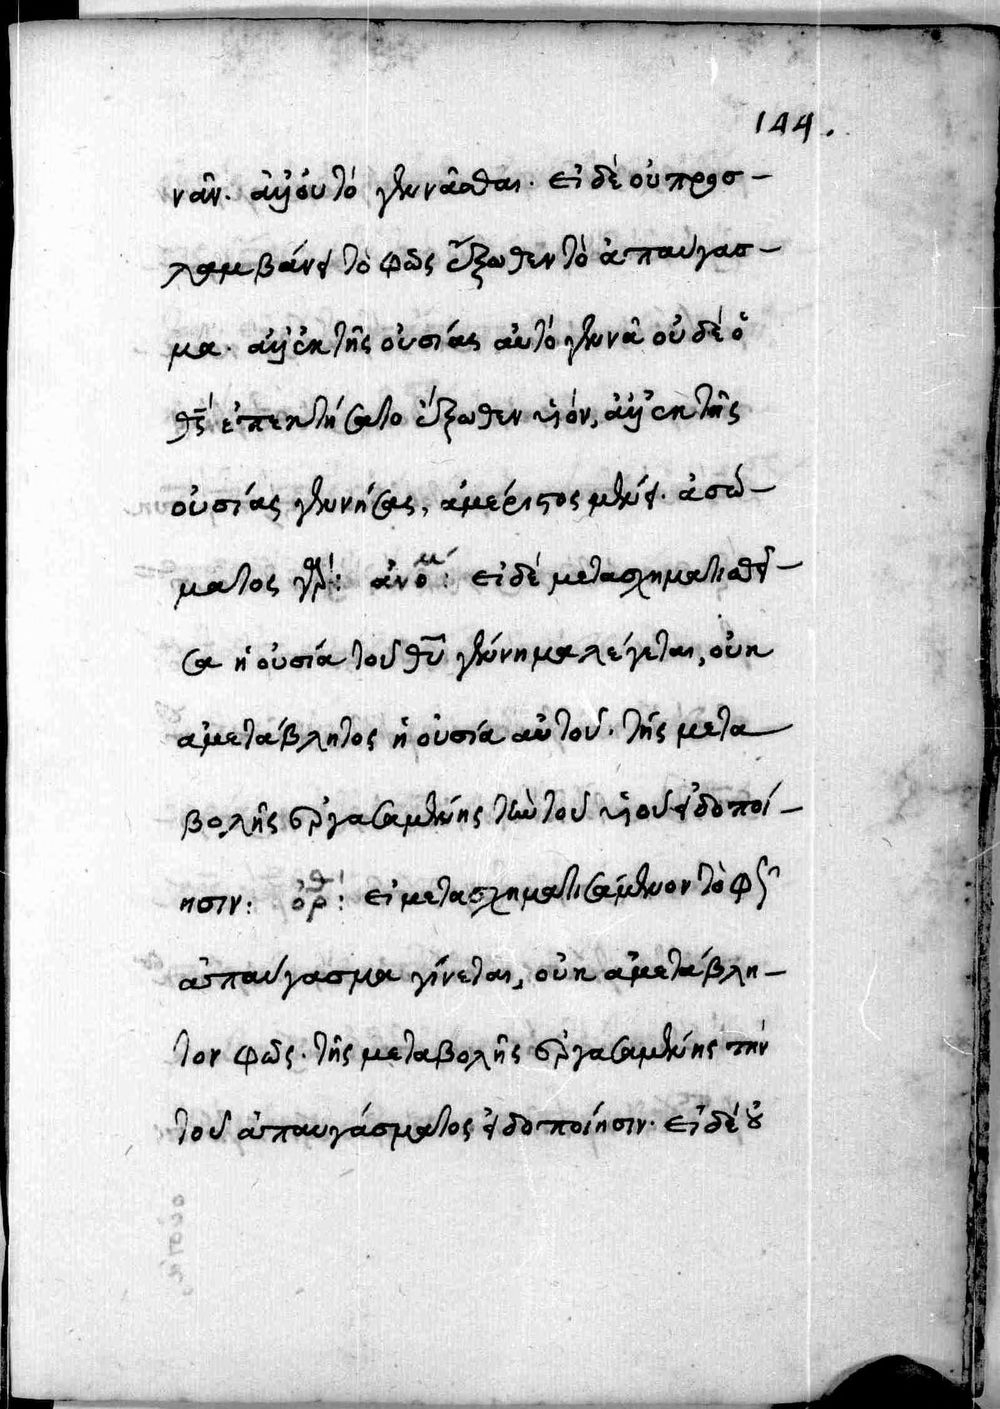 144.
νᾶν. ἀλλ' ὁυτό γεννᾶσθαι. εἰ δὲ οὐ προσ-
λαμβάνει τὸ φῶς ἔξωθεν τὸ ἀπαύγασ-
μα. ἀλλ' ἐκ τῆς οὐσίας αὐτὸ γεννᾶ οὐδὲ ὁ
θς ἐπεκτήσατο ἔξωθεν υἱόν, ἀλλ' ἐκ τῆς
οὐσίας γεννήσας, ἀμέριστος μένει. ἀσώ-
ματος γάρ: ἀνομ: εἰ δὲ μετασχηματισθεῖ-
σα ἡ οὐσία τοῦ θυ γέννημα λέγεται, οὐκ
ἀμετάβλητος ἡ οὐσία αὐτοῦ. τῆς μετα
βολῆς ἐργασαμένης τὴν τοῦ υἱοῦ εἰδοποί-
ησιν: ὀρθ: εἰ μετασχηματισάμενον τὸ φῶς
ἀπαύγασμα γίνεται, οὐκ ἀμετάβλη-
τον φῶς. τῆς μεταβολῆς ἐργασαμένης τὴν
τοῦ ἀπαυγάσματος εἰδοποίησιν. εἰ δὲ οὐ